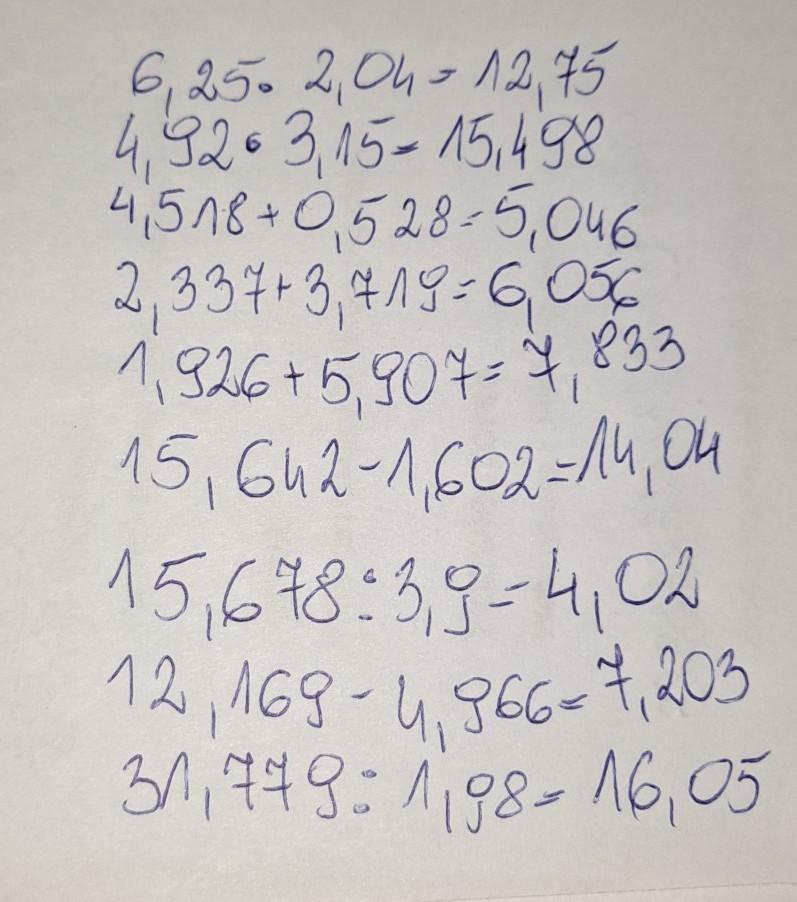 6,25 · 2,04 = 12,75
4,92 · 3,15 = 15,498
4,518 + 0,528 = 5,046
2,337 + 3,719 = 6,056
1,926 + 5,907 = 7,833
15,642 - 1,602 = 14,04
15,678 : 3,9 = 4,02
12,169 - 4,966 = 7,203
31,779 : 1,98 = 16,05